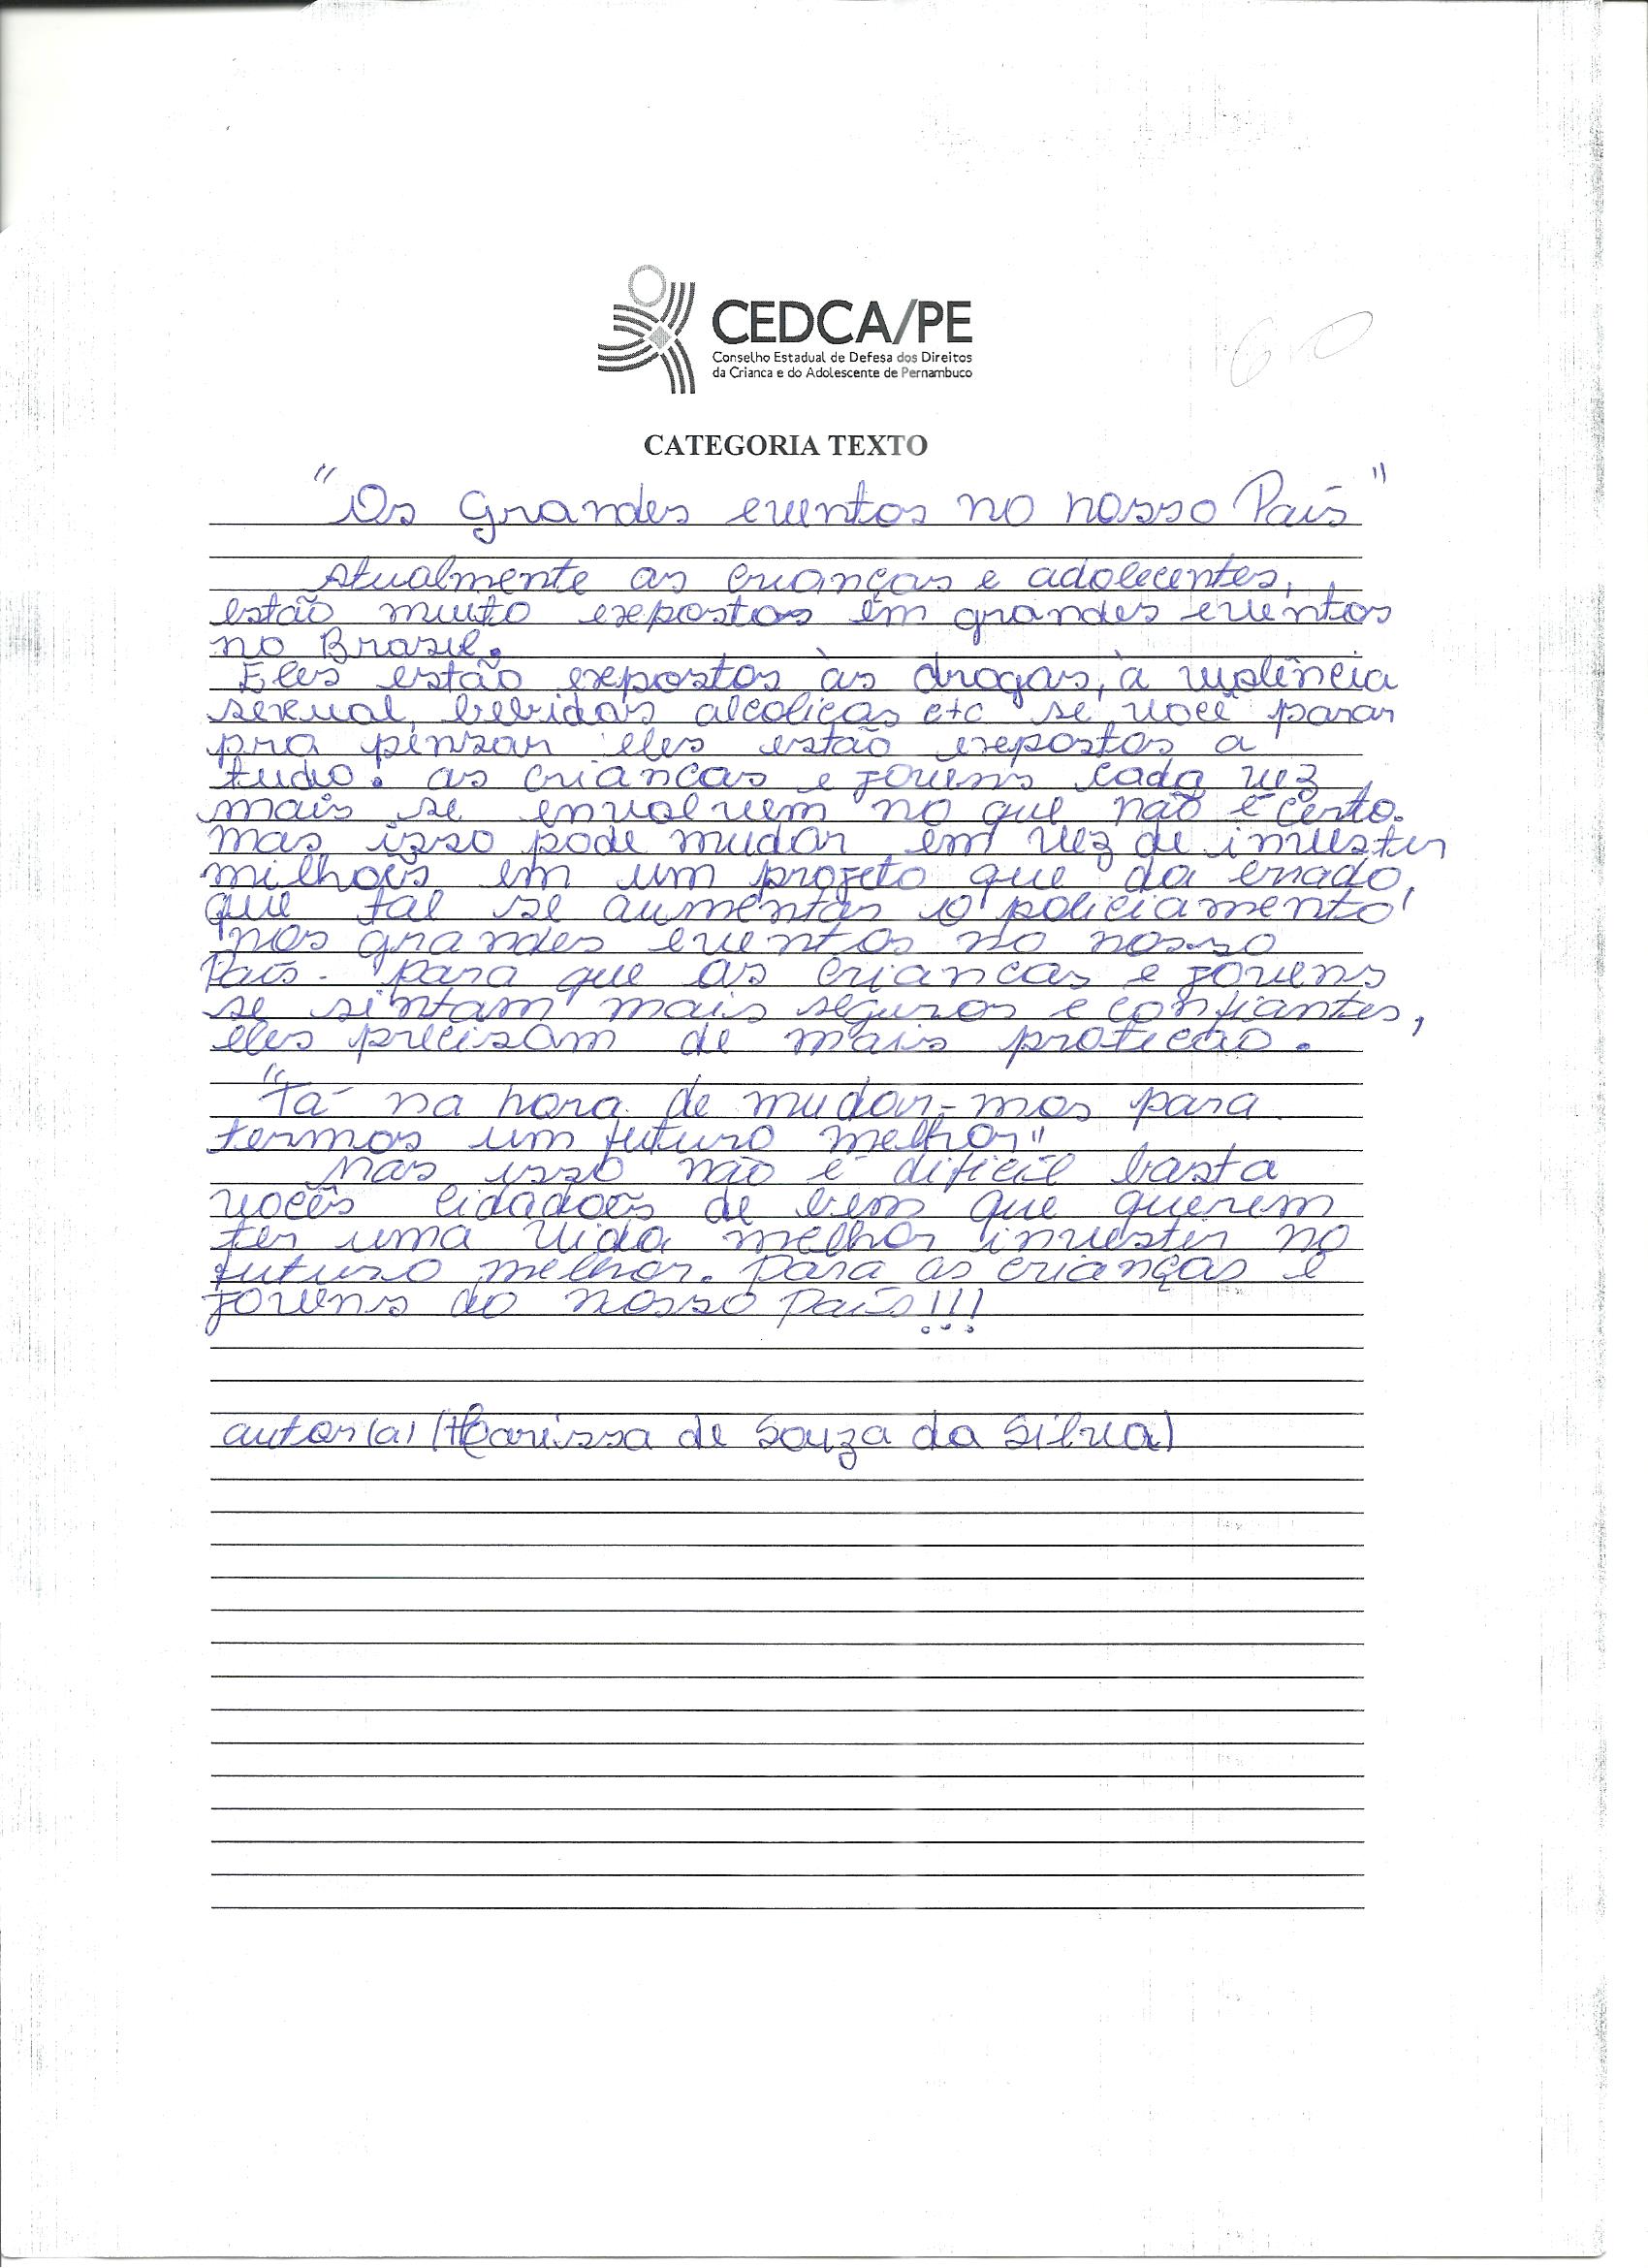 CEDCA/PE
Conselho Estadual de Defesa dos Direitos
da Crianca e do Adolescente de Pernambuco
6,0
CATEGORIA TEXTO
"Os grandes eventos no nosso País"
Atualmente as crianças e adolecentes,
estão muito expostos em grandes eventos
no Brasil.
Eles estão expostos às drogas, à violência
sexual, bebidas alcolicas etc se você parar
pra pensar eles estão expostos a
tudo. as criancas e jovens cada vez
mais se envolvem no que não é certo.
mas isso pode mudar em vez de investir
milhoẽs em um projeto que da errado,
que tal se aumentar o policiamento
nos grandes eventos no nosso
País. para que as criancas e jovens
se sintam mais seguros e confiantes,
eles precisam de mais proteção.
"Tá na hora de mudar-mos para
termos um futuro melhor"
Mas isso não é dificil basta
vocês cidadoẽs de bem que querem
ter uma vida melhor investir no
futuro melhor. para as crianças e
jovens do nosso país!!!
autor(a) (Harissa de Souza da Silva)